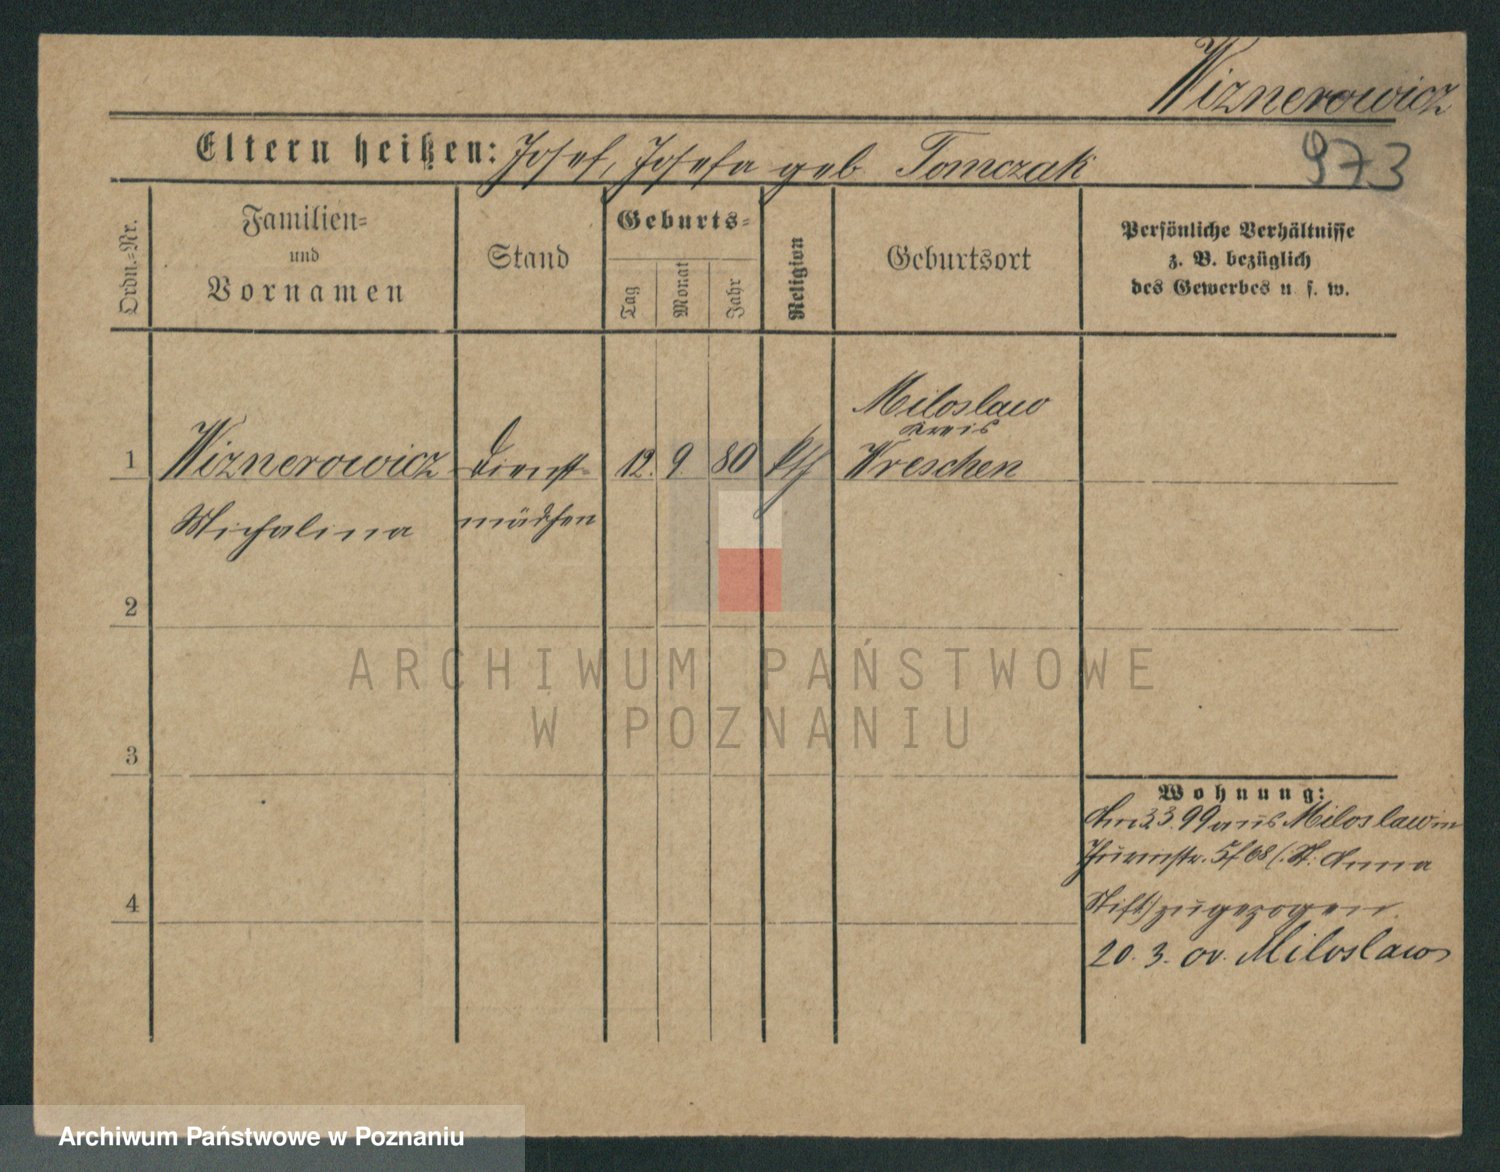 Wiznerowicz
973
Eltern heißen: Josef, Josefa geb Tomczak
Ordn.=Nr.
Familien=
und
Vornamen
Stand
Geburts=
Tag
Monat
Jahr
Religion
Geburtsort
Persönliche Verhältnisse
z. B. bezüglich
des Gewerbes u. s. w.
1
Wiznerowicz
Michalina
Dienst=
mädchen
12. 9. 80
kth
Miloslaw
Kreis
Wreschen
2
3
4
Wohnung:
Am 3.3.99 aus Miloslaw in
5/68 (St. Anna
Stift) zugezogen.
20. 3. 00. Miloslaw
ARCHIWUM PAŃSTWOWE
W POZNANIU
Archiwum Państwowe w Poznaniu